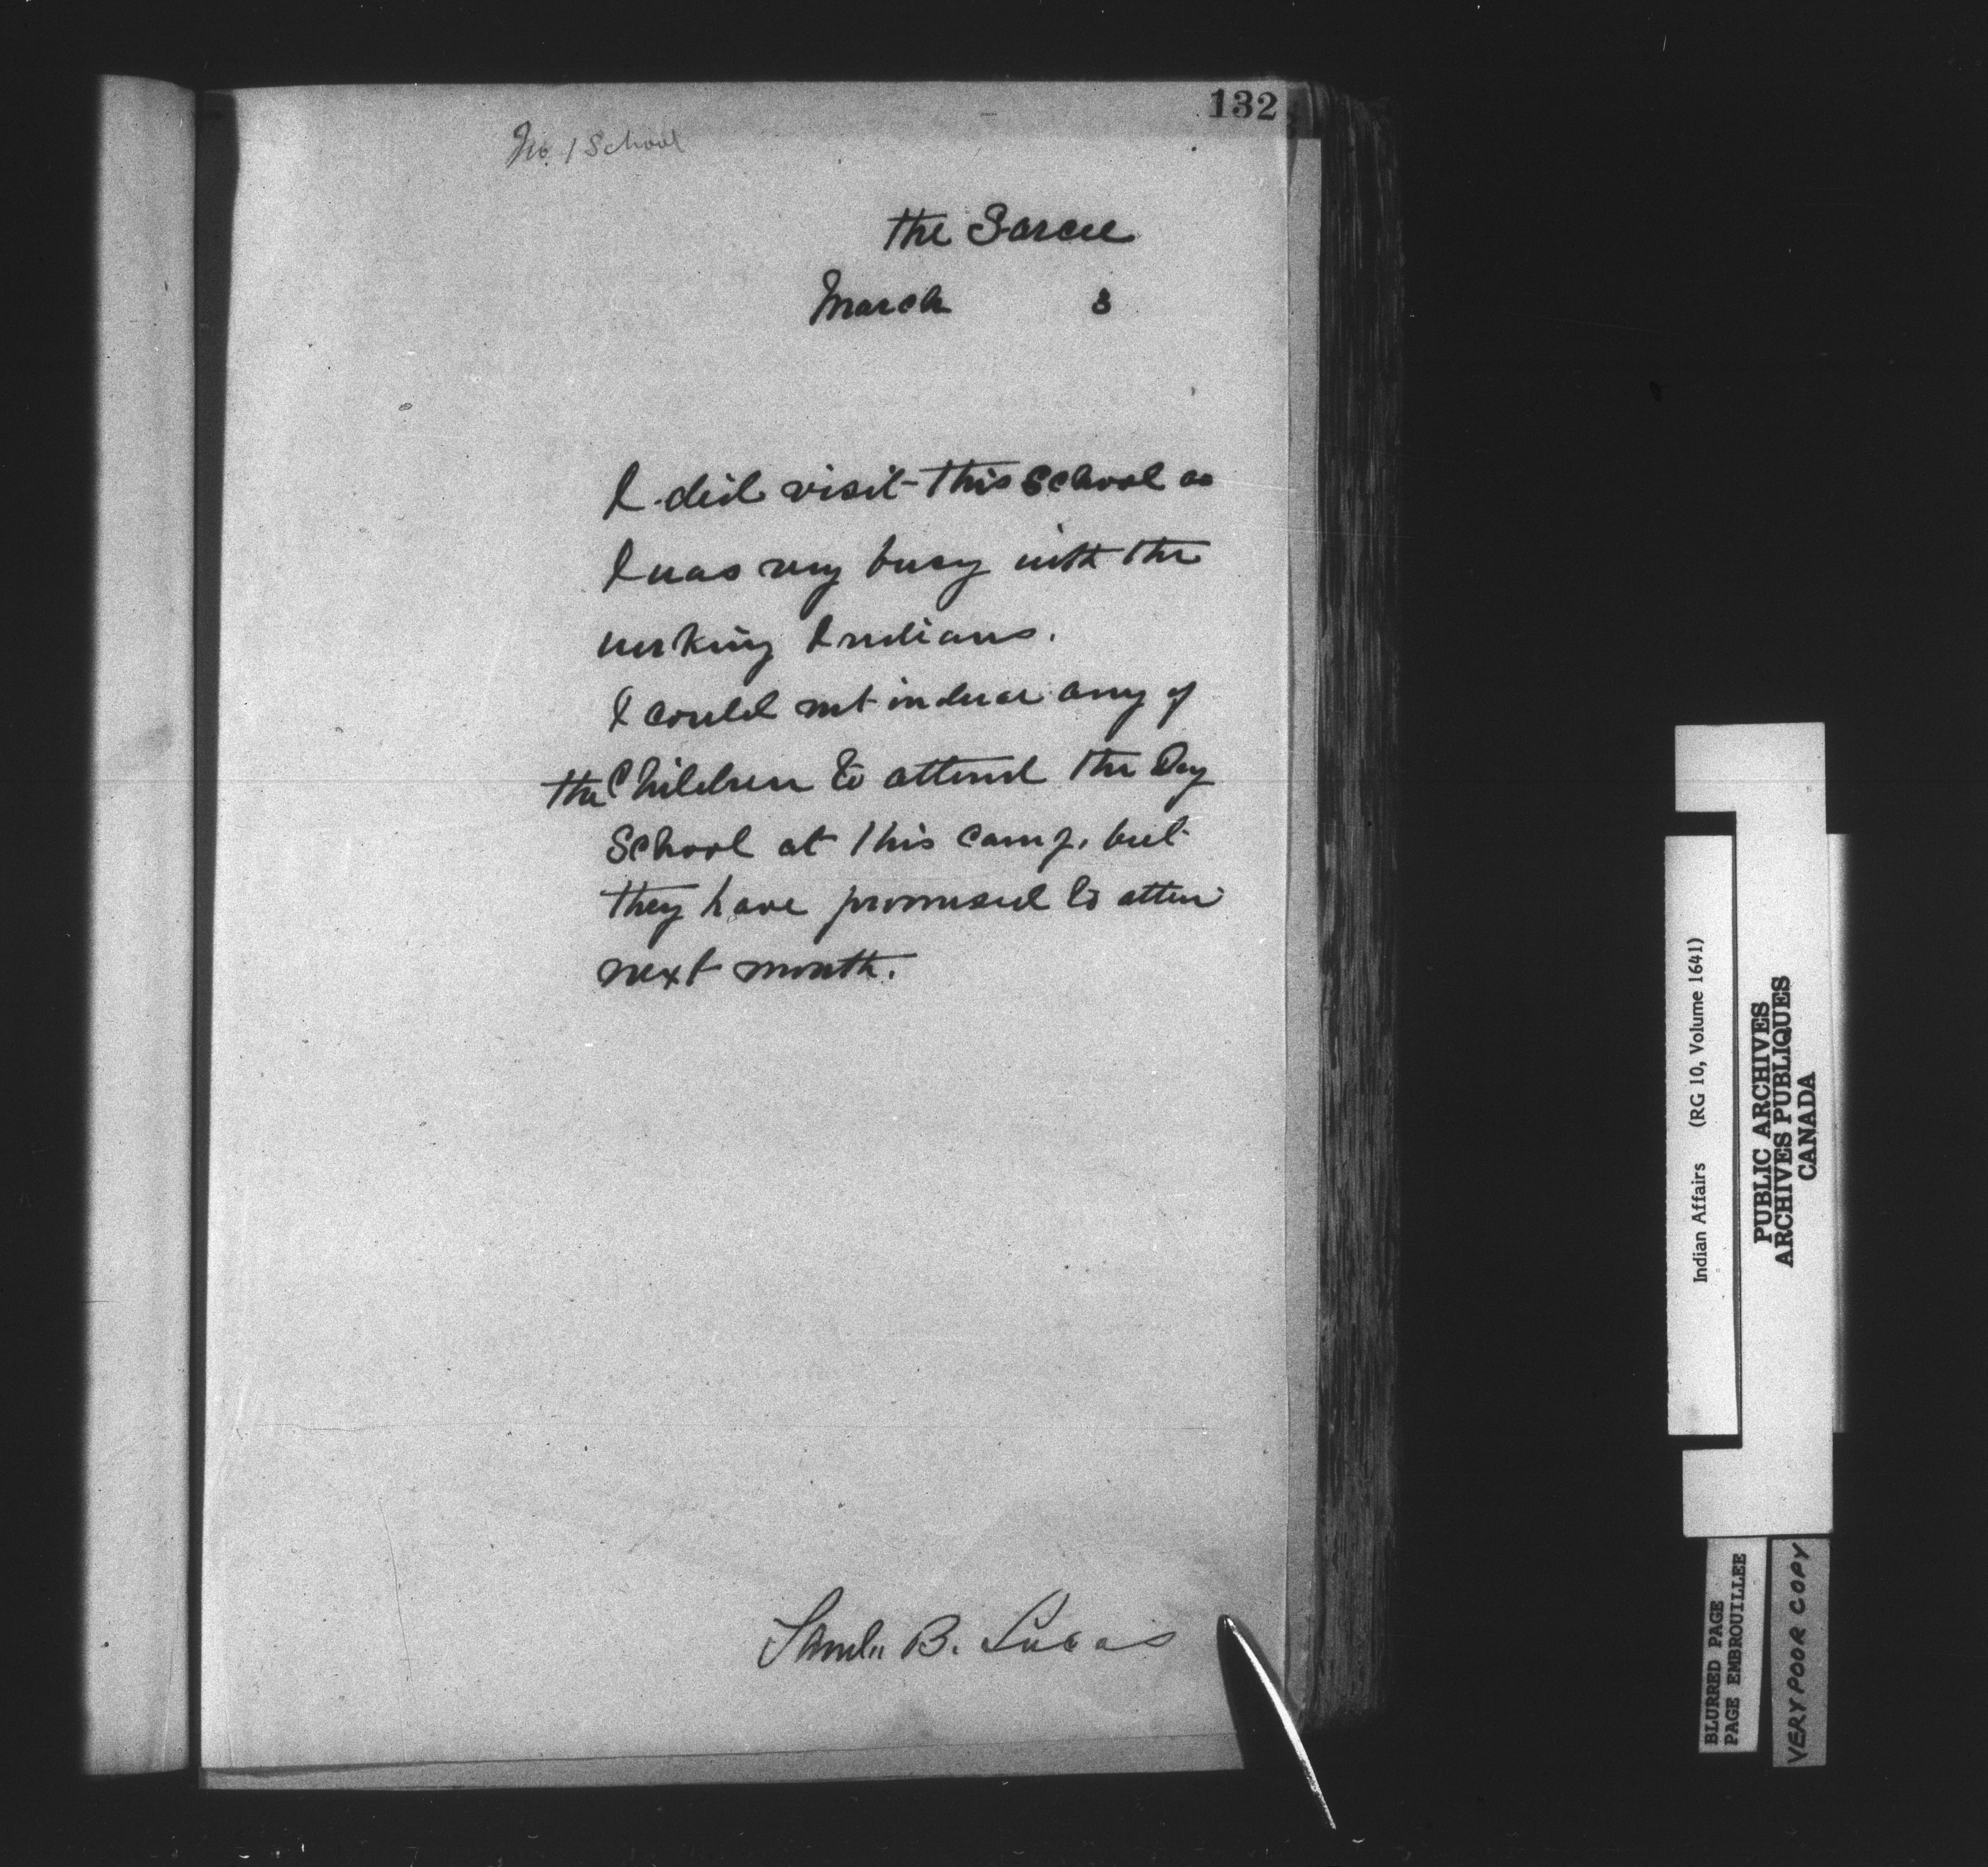 132
No. 1 School
the Sarcee
March 3
I did visit this School as
I was very busy with the
working Indians.
I could not induce any of
the Children to attend the Day
School at this camp, but
they have promised to atten
next month.
Saml. B. Lucas
Indian Affairs (RG 10, Volume 1641)
PUBLIC ARCHIVES
ARCHIVES PUBLIQUES
CANADA
BLURRED PAGE
PAGE EMBROUILLEE
VERY POOR COPY